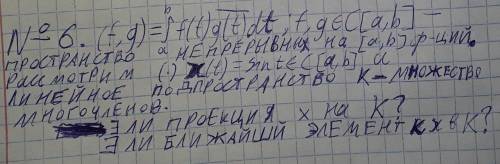 № 6. (f,g)=∫ₐᵇ f(t)\overline{g(t)}dt; f,g∈C[a,b] —
ПРОСТРАНСТВО НЕПРЕРЫВНЫХ на [a,b] Ф-ЦИЙ.
РАССМОТРИМ (·) x(t)=sint∈C[a,b] и
ЛИНЕЙНОЕ ПОДПРОСТРАНСТВО K — МНОЖЕСТВО
МНОГОЧЛЕНОВ.
∃ ЛИ ПРОЕКЦИЯ x НА K?
∃ ЛИ БЛИЖАЙШИЙ ЭЛЕМЕНТ К x В K?